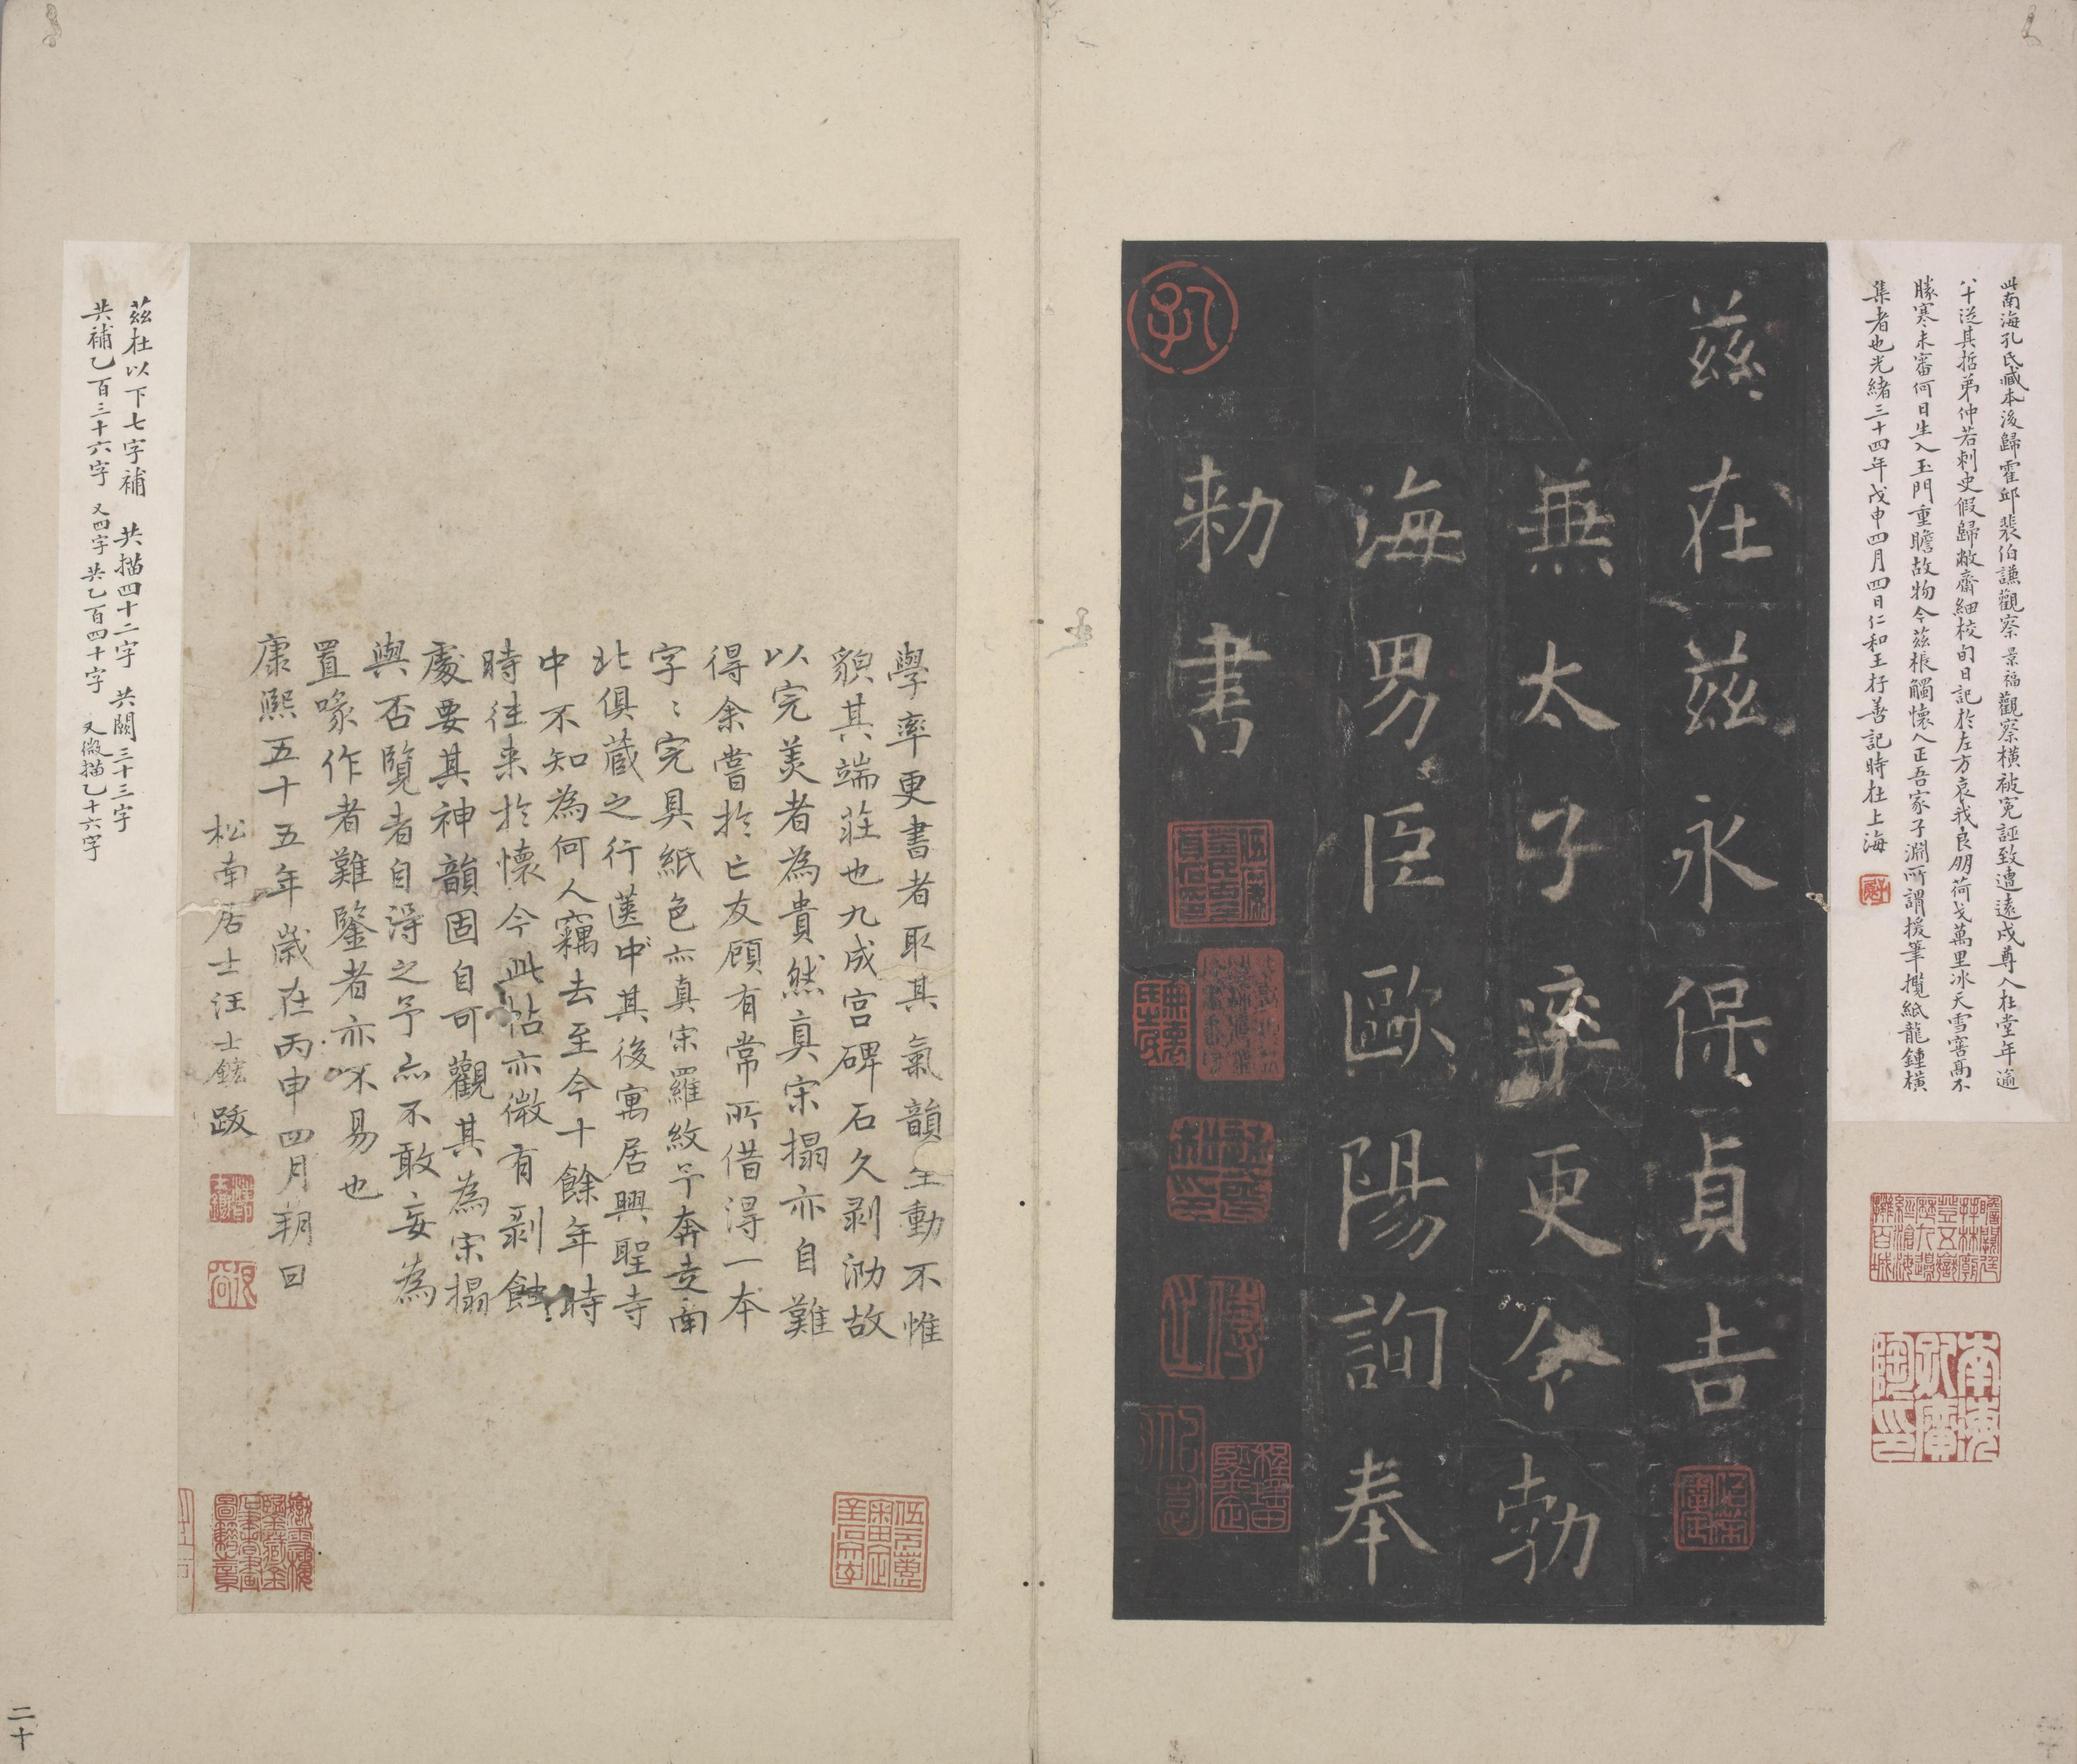 此南海孔氏藏本後歸霍邱裴伯謙觀察景福觀察橫被冤誣致遭遠戍尊人在堂年逾
八十從其哲弟仲若刺史假歸敝齋細校旬日記於左方哀我良朋荷戈萬里冰天雪窖高不
勝寒未審何日生入玉門重瞻故物今茲棖觸懷人正吾家子淵所謂援筆攬紙龍鍾橫
集者也光緒三十四年戊申四月四日仁和王存善記時在上海
茲在茲永保貞吉
無太子率更令勃
海男臣歐陽詢奉
勑書
孔
南海孔廣陶印
學率更書者取其氣韻生動不惟
貌其端莊也九成宮碑石久剥泐故
以完美者為貴然真宋搨亦自難
得余嘗於亡友顧有常所借得一本
字〻完具紙色亦真宋羅紋予奔走南
北俱蔵之行篋中其後寓居興聖寺
中不知為何人竊去至今十餘年時
時往来於懷今此帖亦微有剥蝕
處要其神韻固自可觀其為宋搨
與否覽者自得之予亦不敢妄為
置喙作者難鑒者亦不易也
康熙五十五年歲在丙申四月朔日
松南居士汪士鋐跋
茲在以下七字補 共描四十二字 共闕三十三字
共補乙百三十六字 又四字 共乙百四十字 又微描乙十六字
二十